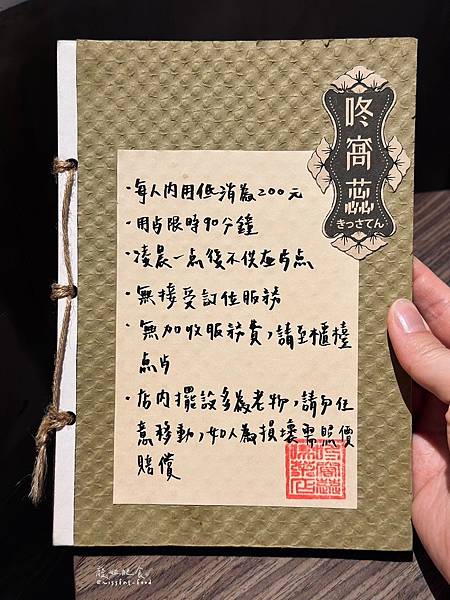 咚窩蕊
きっさてん
·每人內用低消為200元
·用占限時90分鐘
·凌晨一点後不供應占点
·無接受訂位服務
·無加收服務費,請至櫃檯
点占
·店內擺設多為老物,請勿任
意移動,如人為損壞需照價
賠償